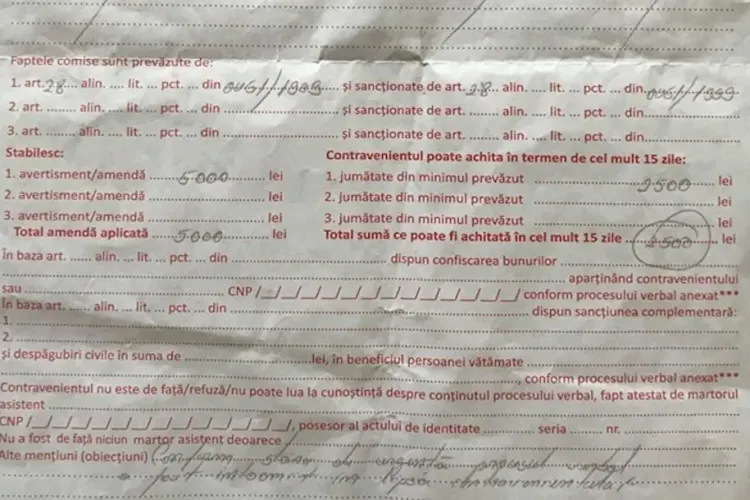 Faptele comise sunt prevăzute de:
1. art. 28 alin. .... lit. ... pct. ... din OUG 1/1999 ..... și sancționate de art. 28 alin. .... lit. ... pct. ... din OUG 1/1999
2. art. ........ alin. .... lit. ... pct. ... din ........................ și sancționate de art. ........ alin. .... lit. ... pct. ... din ........................
3. art. ........ alin. .... lit. ... pct. ... din ........................ și sancționate de art. ........ alin. .... lit. ... pct. ... din ........................
Stabilesc: Contravenientul poate achita în termen de cel mult 15 zile:
1. avertisment/amendă ......5000............ lei 1. jumătate din minimul prevăzut .....................2500..... lei
2. avertisment/amendă ........................ lei 2. jumătate din minimul prevăzut ........................ lei
3. avertisment/amendă ........................ lei 3. jumătate din minimul prevăzut ........................ lei
Total amendă aplicată .....5000............ lei Total sumă ce poate fi achitată în cel mult 15 zile .....2500..... lei
În baza art. ...... alin. ... lit. ... pct. ... din ........................ dispun confiscarea bunurilor ........................
........................ aparținând contravenientului
sau ........................ CNP /_/_/_/_/_/_/_/_/_/_/_/_/_/ conform procesului verbal anexat***
În baza art. ...... alin. ... lit. ... pct. ... din ........................ dispun sancțiunea complementară:
1. ........................
2. ........................
și despăgubiri civile în suma de ........................lei, în beneficiul persoanei vătămate ........................
........................, conform procesului verbal anexat***
Contravenientul nu este de față/refuză/nu poate lua la cunoștință despre conținutul procesului verbal, fapt atestat de martorul
asistent ........................
CNP /_/_/_/_/_/_/_/_/_/_/_/_/_/, posesor al actului de identitate ............... seria ....... nr. ...............
Nu a fost de față niciun martor asistent deoarece
Alte mențiuni (obiecțiuni) stare de urgență procesul verbal
a fost întocmit în lipsa contravenientului